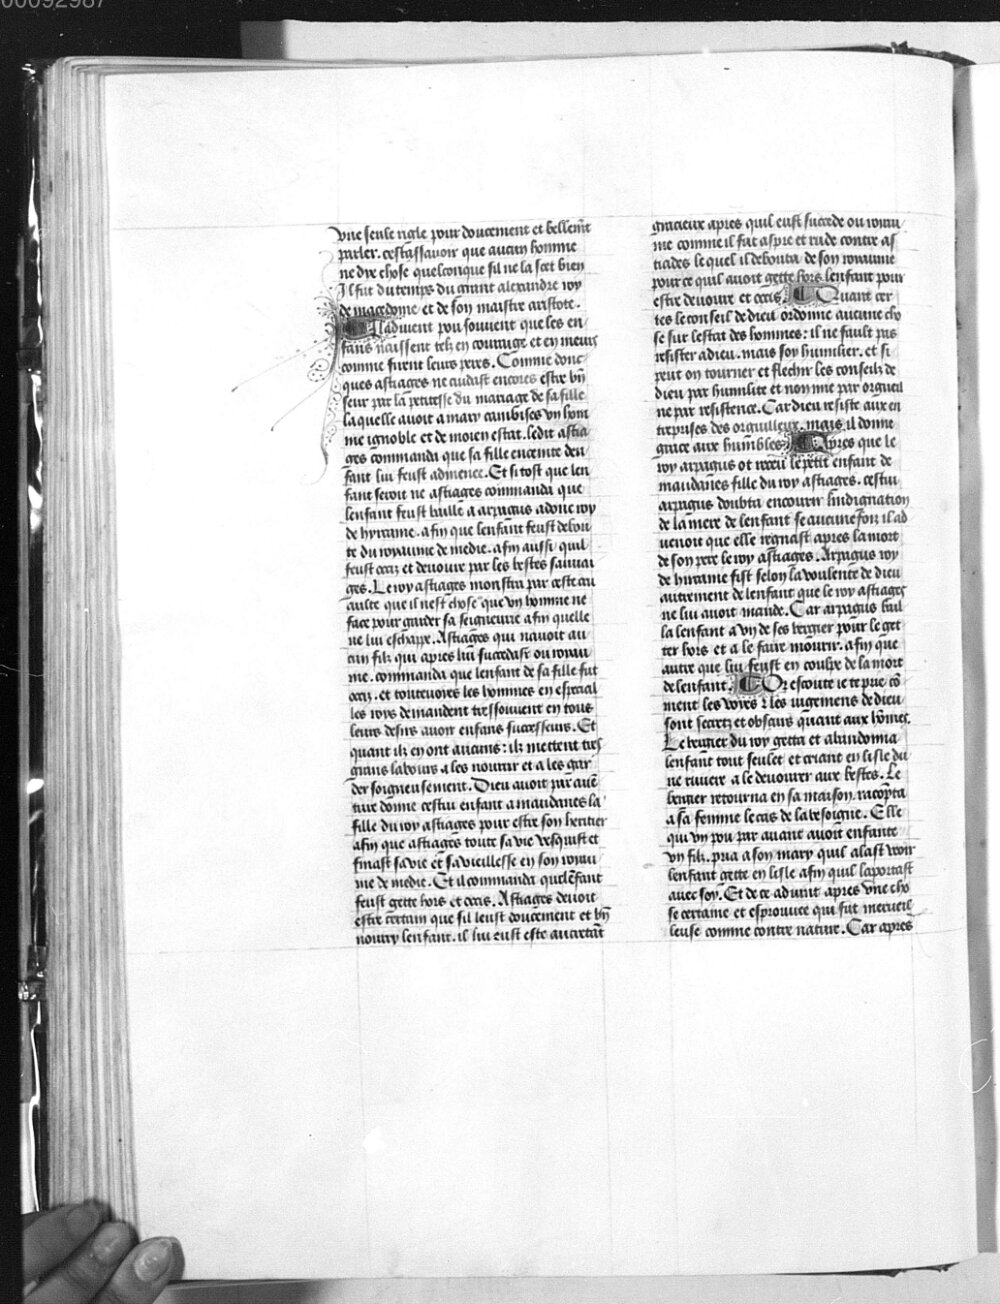 00092987
vne seule rigle pour doucement et bellemt
parler. cestassauoir que aucun homme
ne die chose quelconque sil ne la scet bien
Il fut du temps du grant alexandre roy
de macedone et de son maistre aristote.
Il aduient pou souuent que les en
fans naissent telz en courage et en meurs
comme furent leurs peres. Comme donc
ques astiages ne cudast encores estre bn̄
seur par la petitesse du mariage de sa fille
laquelle auoit a mary cambises vn hom
me ignoble et de moien estat. ledit astia
ges commanda que sa fille enceinte den
fant lui feust admenee. Et si tost que len
fant seroit ne astiages commanda que
lenfant feust baille a arpagus adonc roy
de hyrcanie. afin que lenfant feust debou
te du royaume de medie. afin aussi quil
feust occiz et deuoure par les bestes sauuai
ges. Le roy astiages monstra par ceste cru
aulte que il nest chose que vn homme ne
face pour garder sa seigneurie afin quelle
ne lui eschape. Astiages qui nauoit au
cun filz qui apres lui succedast ou royau
me. commanda que lenfant de sa fille fut
occiz. et toutesuoies les hommes en especial
les roys demandent tressouuent en tous
leurs desirs auoir enfans successeurs. Et
quant ilz en ont aucuns: ilz mettent tres
grans labours a les nourrir et a les gar
der soigneusement. Dieu auoit par auē
ture donne cestui enfant a mandanes la
fille du roy astiages pour estre son heritier
afin que astiages toute sa vie vesquist et
finast sa vie et sa vieillesse en son royau
me de medie. Et il commanda que lēfant
feust gette hors et occis. Astiages deuoit
estre certain que sil leust doucement et bn̄
nourry lenfant. il lui eust este aucretāt
gracieux apres quil eust succede ou royau
me comme il fut aspre et rude contre as
tiages lequel il debouta de son royaume
pour ce quil auoit gette hors lenfant pour
estre deuoure et occis. Quant cer
tes le conseil de dieu ordonne aucune cho
se sur lestat des hommes: il ne fault pas
resister a dieu. mais soy humilier. et si
peut on tourner et flechir les conseilz de
dieu par humilite et non mie par orgueil
ne par resistence. Car dieu resiste aux en
treprises des orguilleux. mais il donne
grace aux humbles Apres que le
roy arpagus ot receu le petit enfant de
mandanes fille du roy astiages. cestui
arpagus doubta encourir lindignation
de la mere de lenfant se aucunefoiz il ad
uenoit que elle regnast apres la mort
de son pere le roy astiages. Arpagus roy
de hircanie fist selon la voulente de dieu
autrement de lenfant que le roy astiages
ne lui auoit mande. Car arpagus bail
la lenfant a vn de ses bergier pour le get
ter hors et a le faire mourir. afin que
autre que lui feust en coulpe de la mort
de lenfant. Or escoute ie te prie cō
ment les voies et les iugemens de dieu
sont secretz et obscurs quant aux hōmes.
Le bergier du roy getta et abandonna
lenfant tout seulet et criant en lisle du
ne riuiere a le deuourer aux bestes. Le
bergier retourna en sa maison. racōpta
a sa femme le cas de la besoigne. Elle
qui vn pou par auant auoit enfante
vn filz. pria a son mary quil alast veoir
lenfant gette en lisle afin quil laportast
auec soy. Et de ce aduint apres vne cho
se certaine et esprouuee qui fut merueil
leuse comme contre nature. Car apres